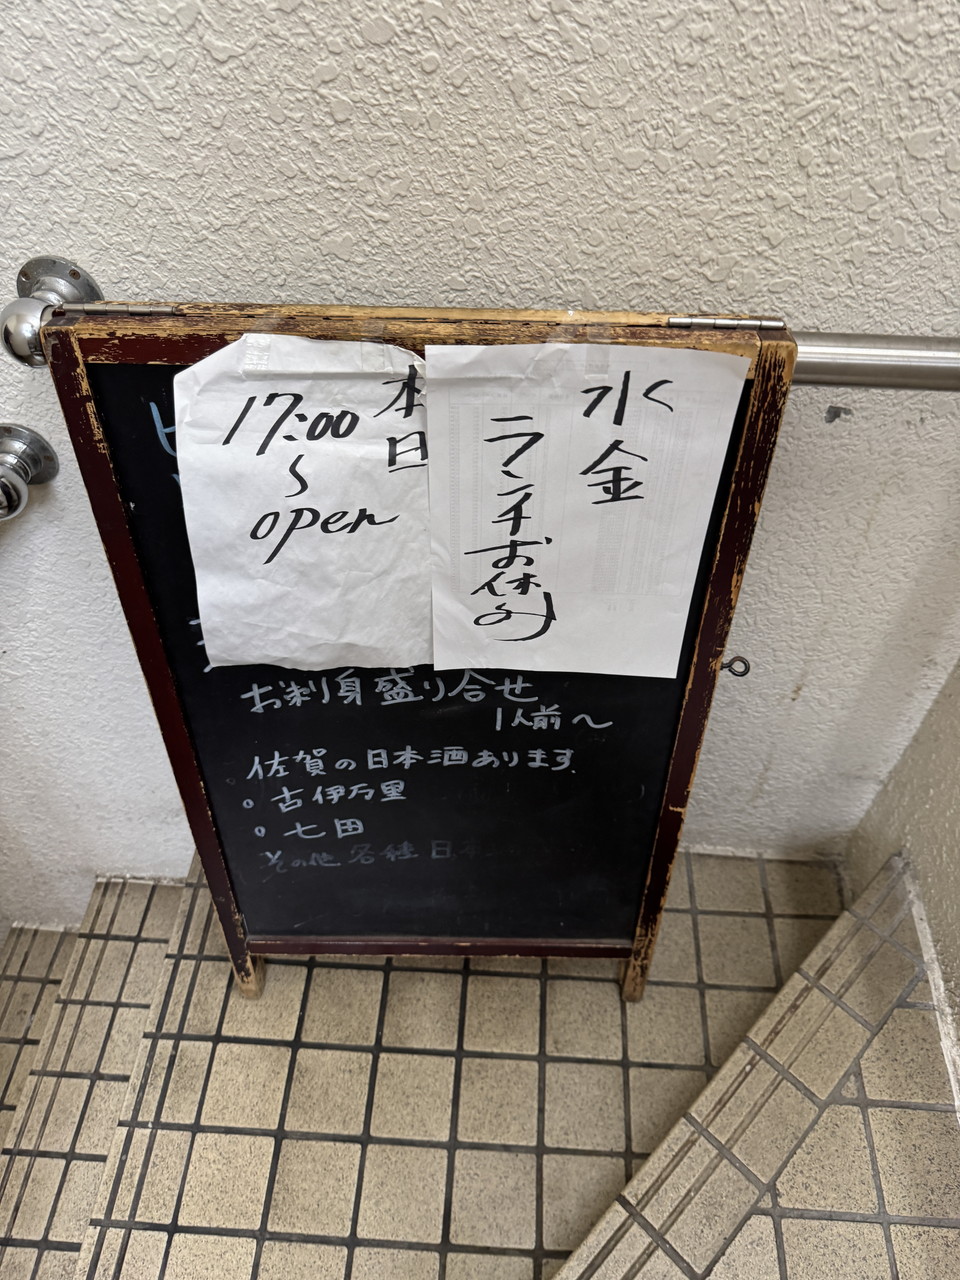 水金
ランチお休み
本日
17:00
〜
open
お刺身盛り合せ
1人前〜
佐賀の日本酒あります
。古伊万里
。七田
その他 各種 日本